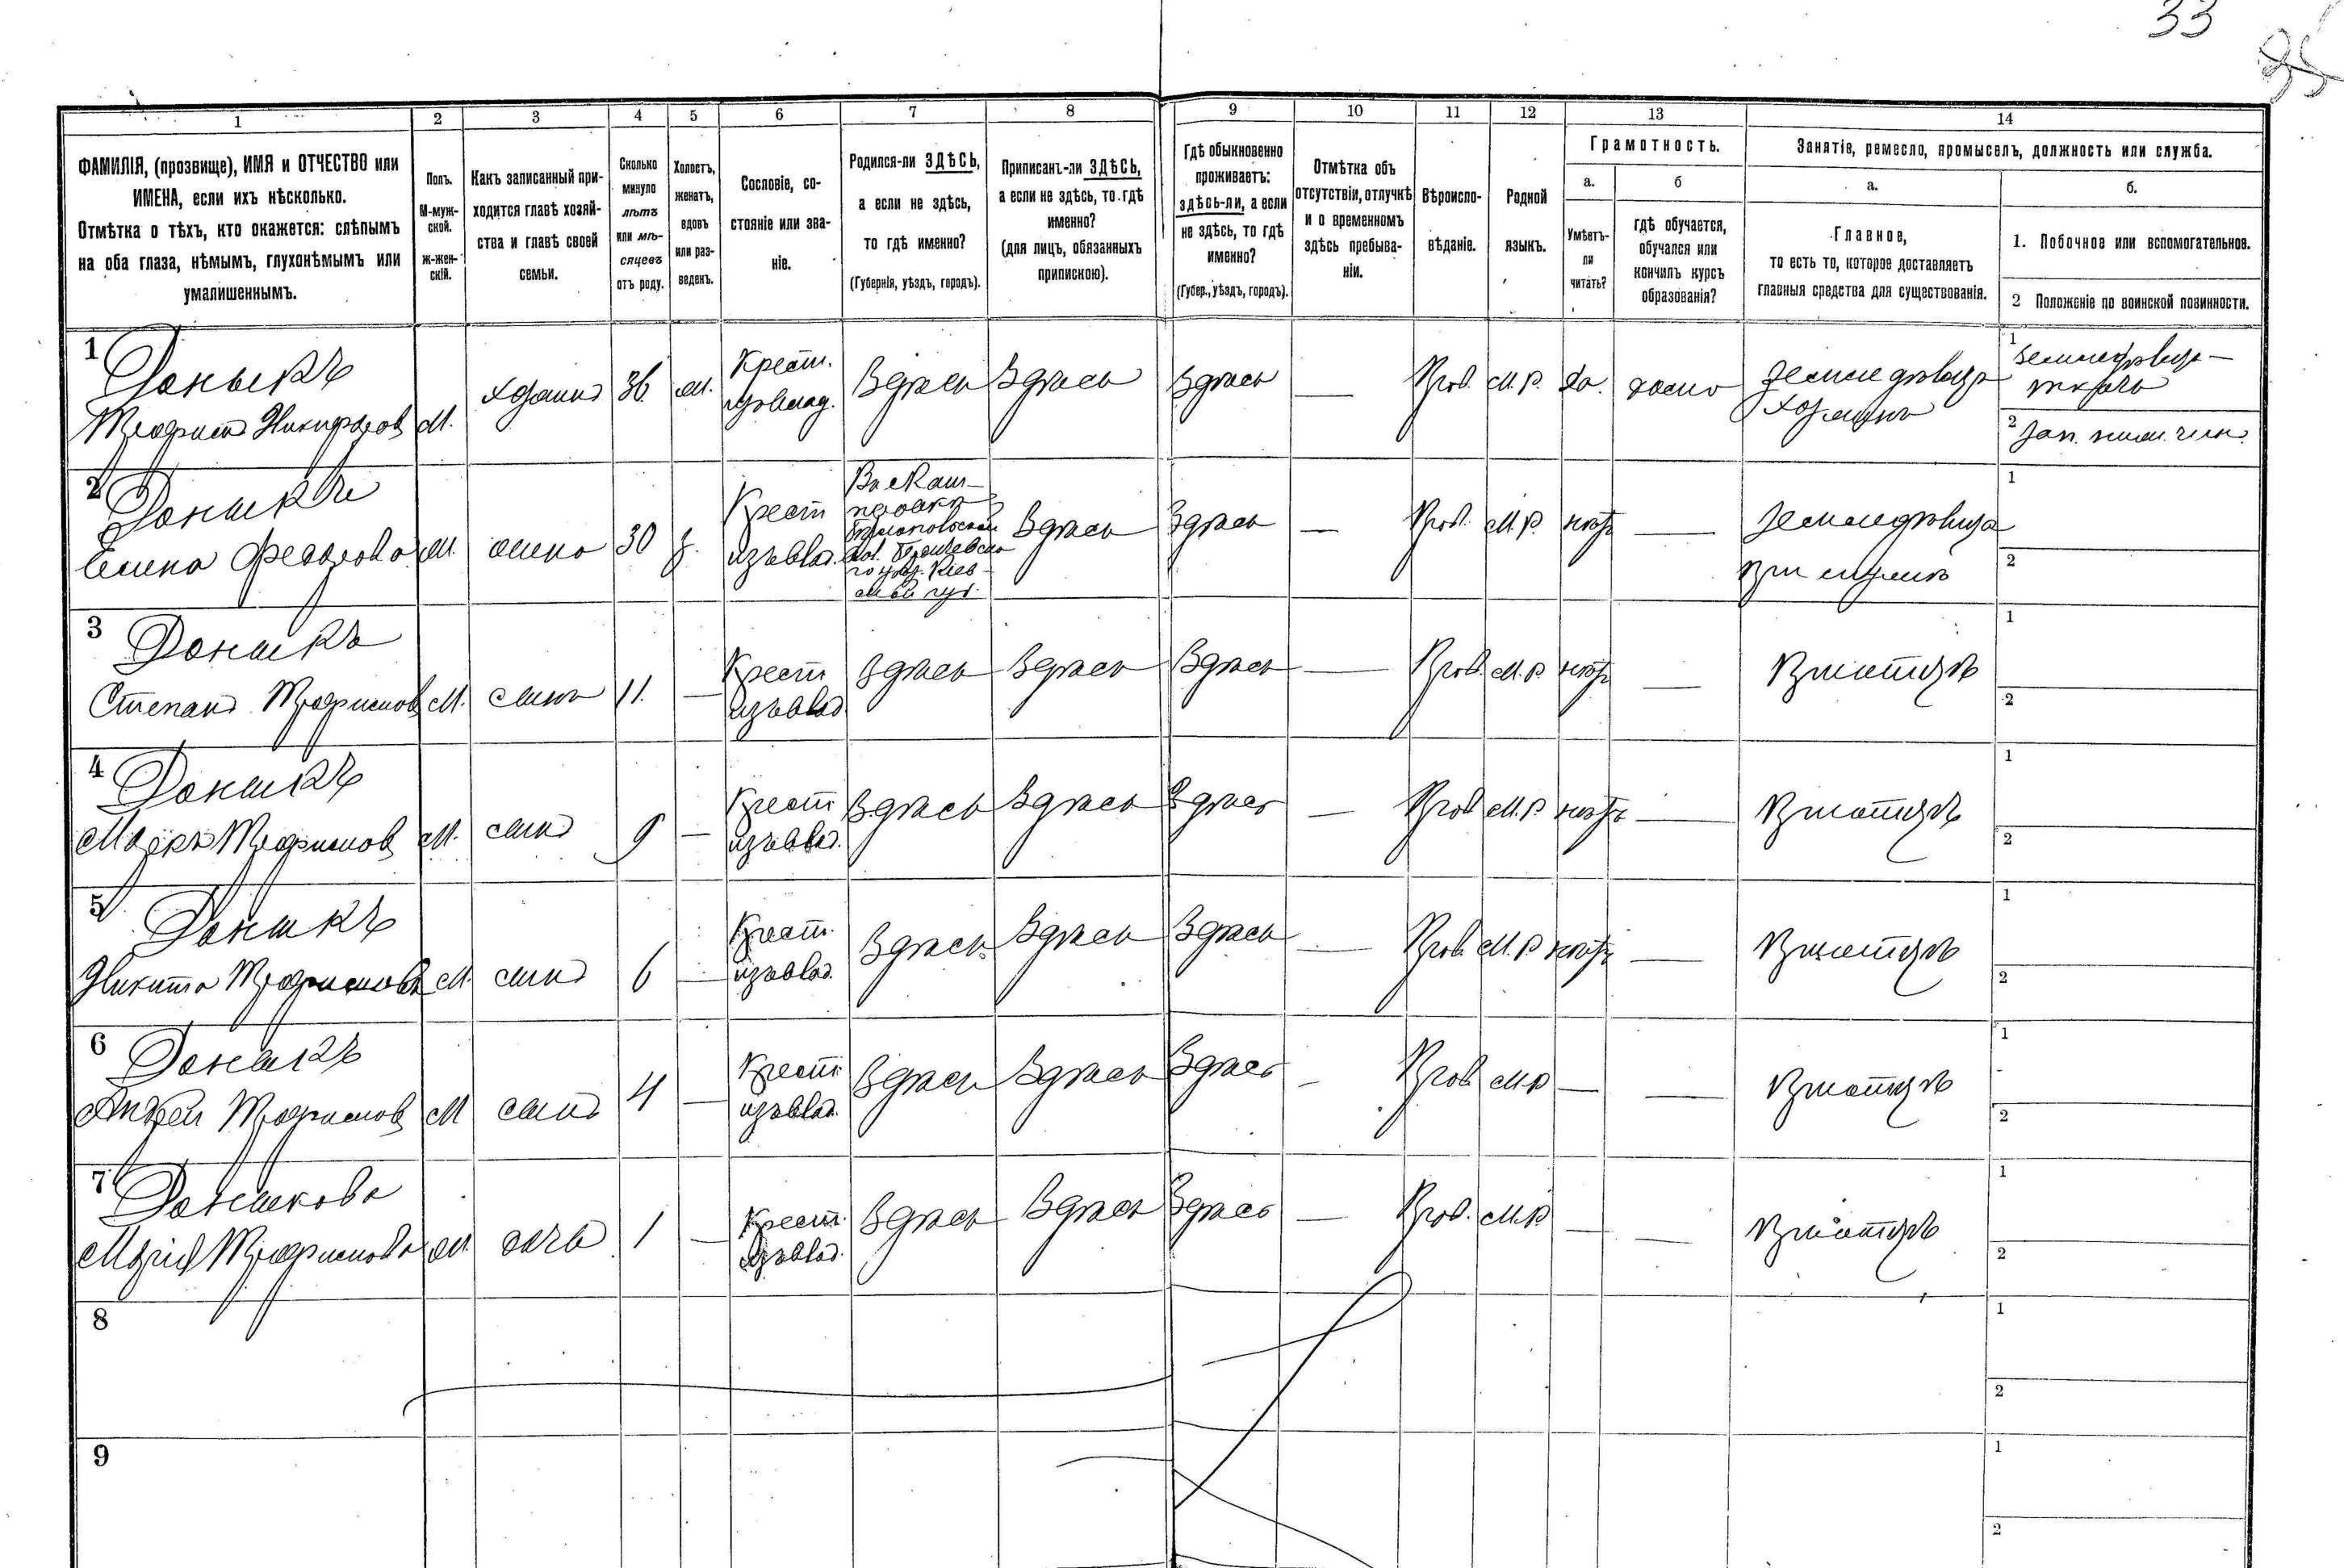 33
95
1
2
3
4
5
6
7
8
9
10
11
12
13
14
ФАМИЛІЯ, (прозвище), ИМЯ и ОТЧЕСТВО или
ИМЕНА, если ихъ нѣсколько.
Отмѣтка о тѣхъ, кто окажется: слѣпымъ
на оба глаза, нѣмымъ, глухонѣмымъ или
умалишеннымъ.
Полъ.
М-муж-
ской.
Ж-жен-
скій.
Какъ записанный при-
ходится главѣ хозяй-
ства и главѣ своей
семьи.
Сколько
минуло
лѣтъ
или мѣ-
сяцевъ
отъ роду.
Холостъ,
женатъ,
вдовъ
или раз-
веденъ.
Сословіе, со-
стояніе или зва-
ніе.
Родился-ли ЗДѢСЬ,
а если не здѣсь,
то гдѣ именно?
(Губернія, уѣздъ, городъ).
Приписанъ-ли ЗДѢСЬ,
а если не здѣсь, то гдѣ
именно?
(для лицъ, обязанныхъ
припискою).
Гдѣ обыкновенно
проживаетъ:
здѣсь-ли, а если
не здѣсь, то гдѣ
именно?
(Губер., уѣздъ, городъ).
Отмѣтка объ
отсутствіи, отлучкѣ
и о временномъ
здѣсь пребыва-
ніи.
Вѣроиспо-
вѣданіе.
Родной
языкъ.
Грамотность.
а.
Умѣетъ-
ли
читать?
б
гдѣ обучается,
обучался или
кончилъ курсъ
образованія?
Занятіе, ремесло, промыселъ, должность или служба.
а.
Главное,
то есть то, которое доставляетъ
главныя средства для существованія.
б.
1. Побочное или вспомогательное.
2 Положеніе по воинской повинности.
1
Трофимъ Никифоров М. хозяинъ 36 Крест. Здѣсь Здѣсь Здѣсь — Прав. М.Р. да. дома
Хозяинъ
1
ткачь
2 Зап. нижн. чин.
2
Елена Федорова жена 30 з. Крест изъ влад. Здѣсь Здѣсь — Прав. М.Р. нѣтъ — Земледѣлица
при мужѣ
1
2
3
Степанъ Трофимовъ М. сынъ 11. — Крест изъ влад Здѣсь Здѣсь Здѣсь — Прав. М.Р. нѣтъ — При отцѣ
1
2
4
Марко Трофимовъ М. сынъ 9 — Крест изъ влад. Здѣсь Здѣсь Здѣсь — Прав М.Р. нѣтъ — При отцѣ
1
2
5
Никита Трофимовъ М. сынъ 6 — Крест. изъ влад. Здѣсь Здѣсь Здѣсь — Прав. М.Р. нѣтъ — При отцѣ
1
2
6
Андрей Трофимовъ М сынъ 4 — Крест изъ влад. Здѣсь Здѣсь Здѣсь — Прав М.Р — — При отцѣ
1
2
7
Марія Трофимова дочь 1 — Крест. изъ влад. Здѣсь Здѣсь Здѣсь — Прав. М.Р — — При отцѣ
1
2
8
1
2
9
1
2